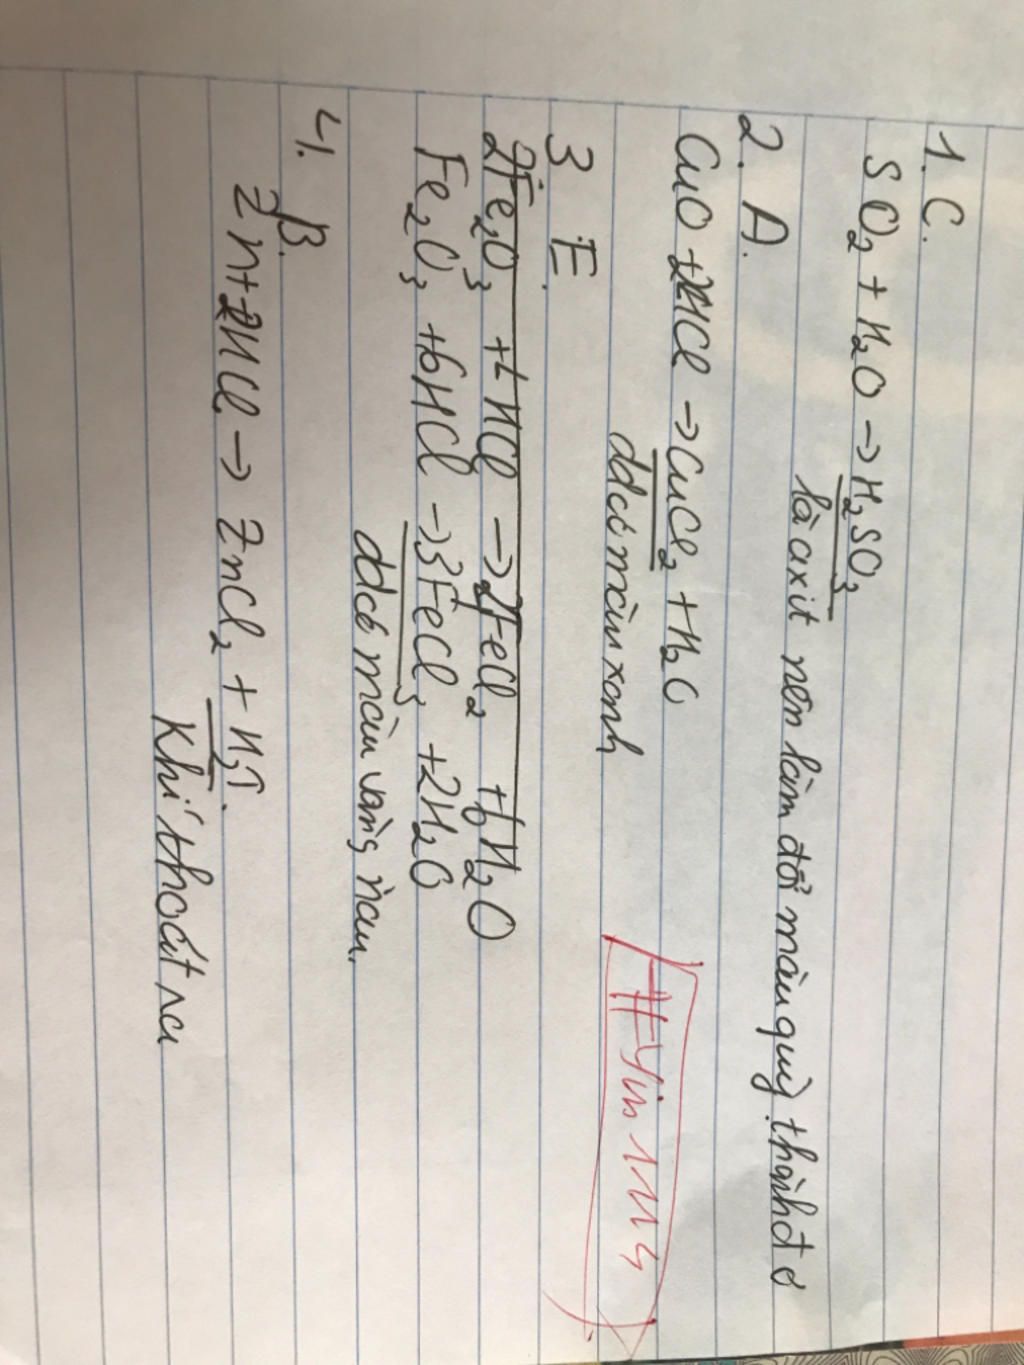 1. C.
SO₂ + H₂O → H₂SO₃
là axit nên làm đổi màu quỳ thành đỏ
2. A.
CuO + 2HCl → CuCl₂ + H₂O
dd có màu xanh
3 E.
2Fe₂O₃ + HCl → 2FeCl₂ + 6H₂O
Fe₂O₃ + 6HCl → 3FeCl₃ + 2H₂O
dd có màu vàng nâu.
4. B.
Zn + 2HCl → ZnCl₂ + H₂↑.
Khí thoát ra